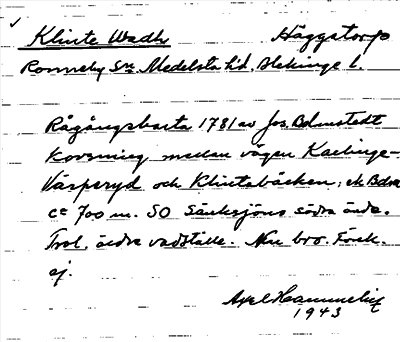 Klinte Wadh Häggatorp
Ronneby Sn Medelsta hd, Blekinge l.
Rågångskarta 1781 av Jos. Bolmstedt
Korsning medan vägen Kallinge-
Väsperyd och Klintabäcken;
ca 700 m. SO Sänksjöns södra ände.
Trol. äldre vadställe. Nu bro. Förek.
ej.
Axel
1943